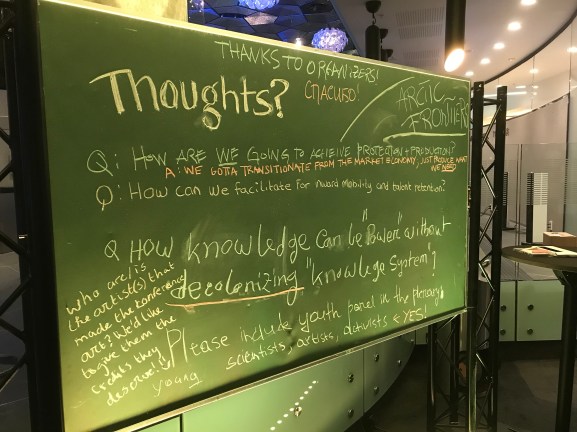 THANKS TO ORGANIZERS!
Thoughts?
СПАСИБО!
ARCTIC
FRONTIER
Q: HOW ARE WE GOING TO ACHIEVE PROTECTION + PRODUCTION?
A: WE GOTTA TRANSITIONATE FROM THE MARKET ECONOMY, JUST PRODUCE WHAT
WE NEED
Q: How can we facilitate for inward mobility and talent retention?
Q HOW knowledge can be "Balert" without
decolonizing "knowlege system"?
who are/is
the artist(s) that
made the konference
arts? We'd like
to give them the
credits they
deserve!
Please include youth panel in the plenary
young scientists, artists, activists < YES!